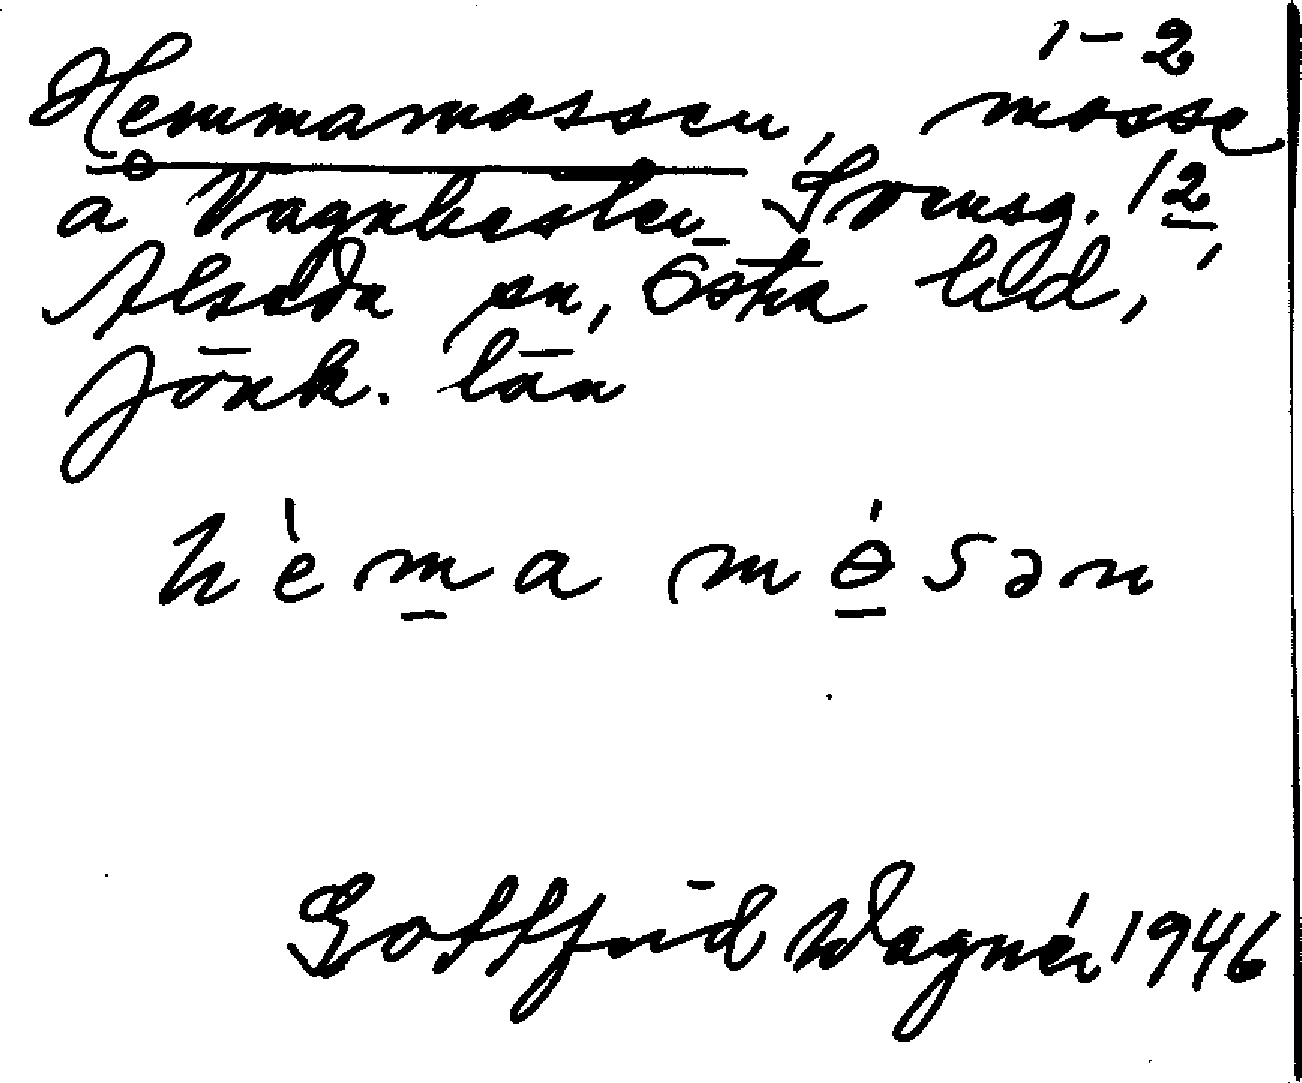 1-2
Hemmamossen, mosse
å Vagnhester
Alseda sn, Östra hd,
Jönk. län
hèma mósən
Gottfrid Wagnér 1946